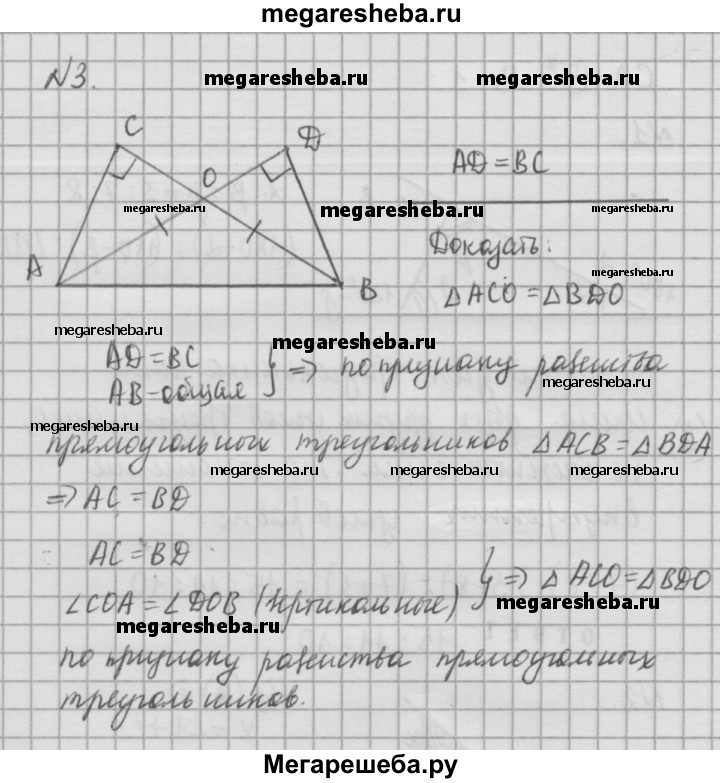 megaresheba.ru
N3.
megaresheba.ru megaresheba.ru
C
D
O
AD = BC
megaresheba.ru
megaresheba.ru
Доказать:
megaresheba.ru
A
B
△ACO = △BDO
megaresheba.ru
megaresheba.ru
AD = BC
AB - общая } ⇒ по признаку равенства
megaresheba.ru
megaresheba.ru
прямоугольных треугольников △ACB = △BDA
megaresheba.ru megaresheba.ru megaresheba.ru
⇒ AC = BD
AC = BD
∠COA = ∠DOB (вертикальные) } ⇒ △ACO = △BDO
megaresheba.ru
megaresheba.ru
по признаку равенства прямоугольных
треугольников.
Мегарешеба.ру